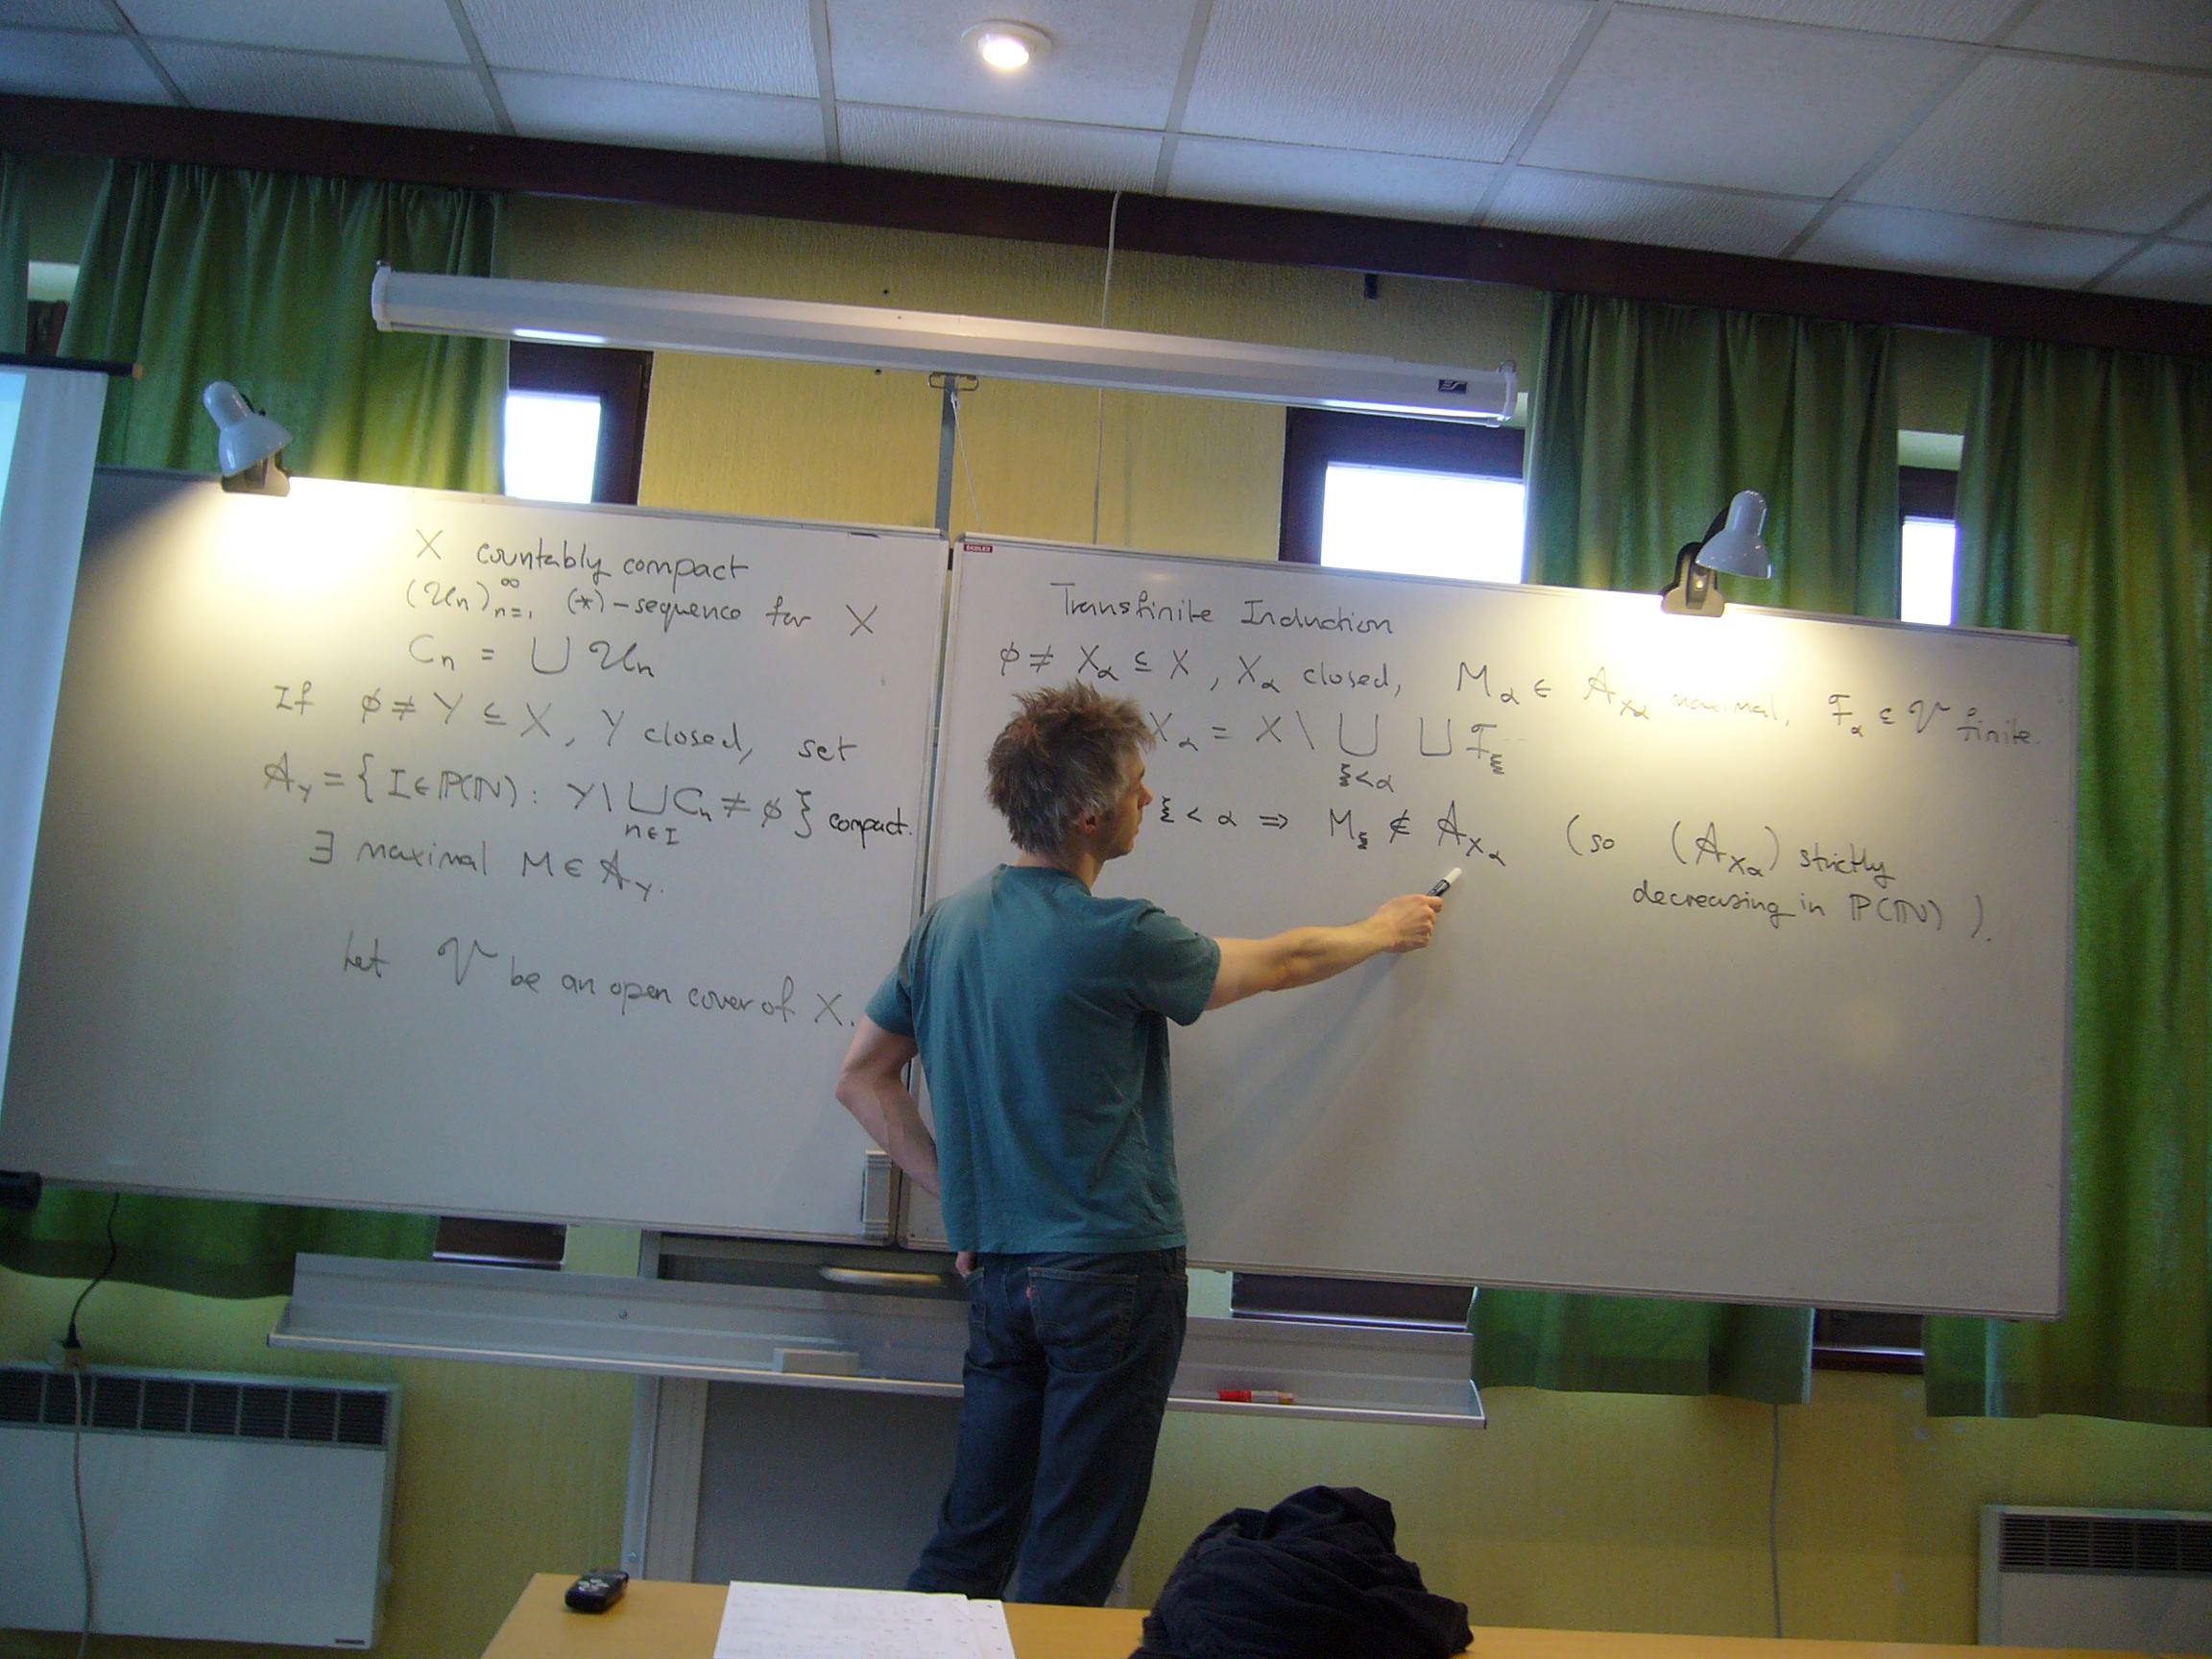 X countably compact
(𝒰n)∞n=1 (*)-sequence for X
Cn = ⋃ 𝒰n
If ϕ ≠ Y ⊆ X, Y closed, set
𝒜Y = { I ∈ ℙ(ℕ) : Y \ ⋃n∈I Cn ≠ ϕ } compact.
∃ maximal M ∈ 𝒜Y.
Let 𝒱 be an open cover of X.
Transfinite Induction
ϕ ≠ Xα ⊆ X, Xα closed, Mα ∈ 𝒜Xα maximal, ℱα ⊆ 𝒱 finite.
Xα = X \ ⋃ξ<α ⋃ ℱξ
ξ < α ⇒ Mξ ∉ 𝒜Xα (so (𝒜Xα) strictly
decreasing in ℙ(ℕ) ).